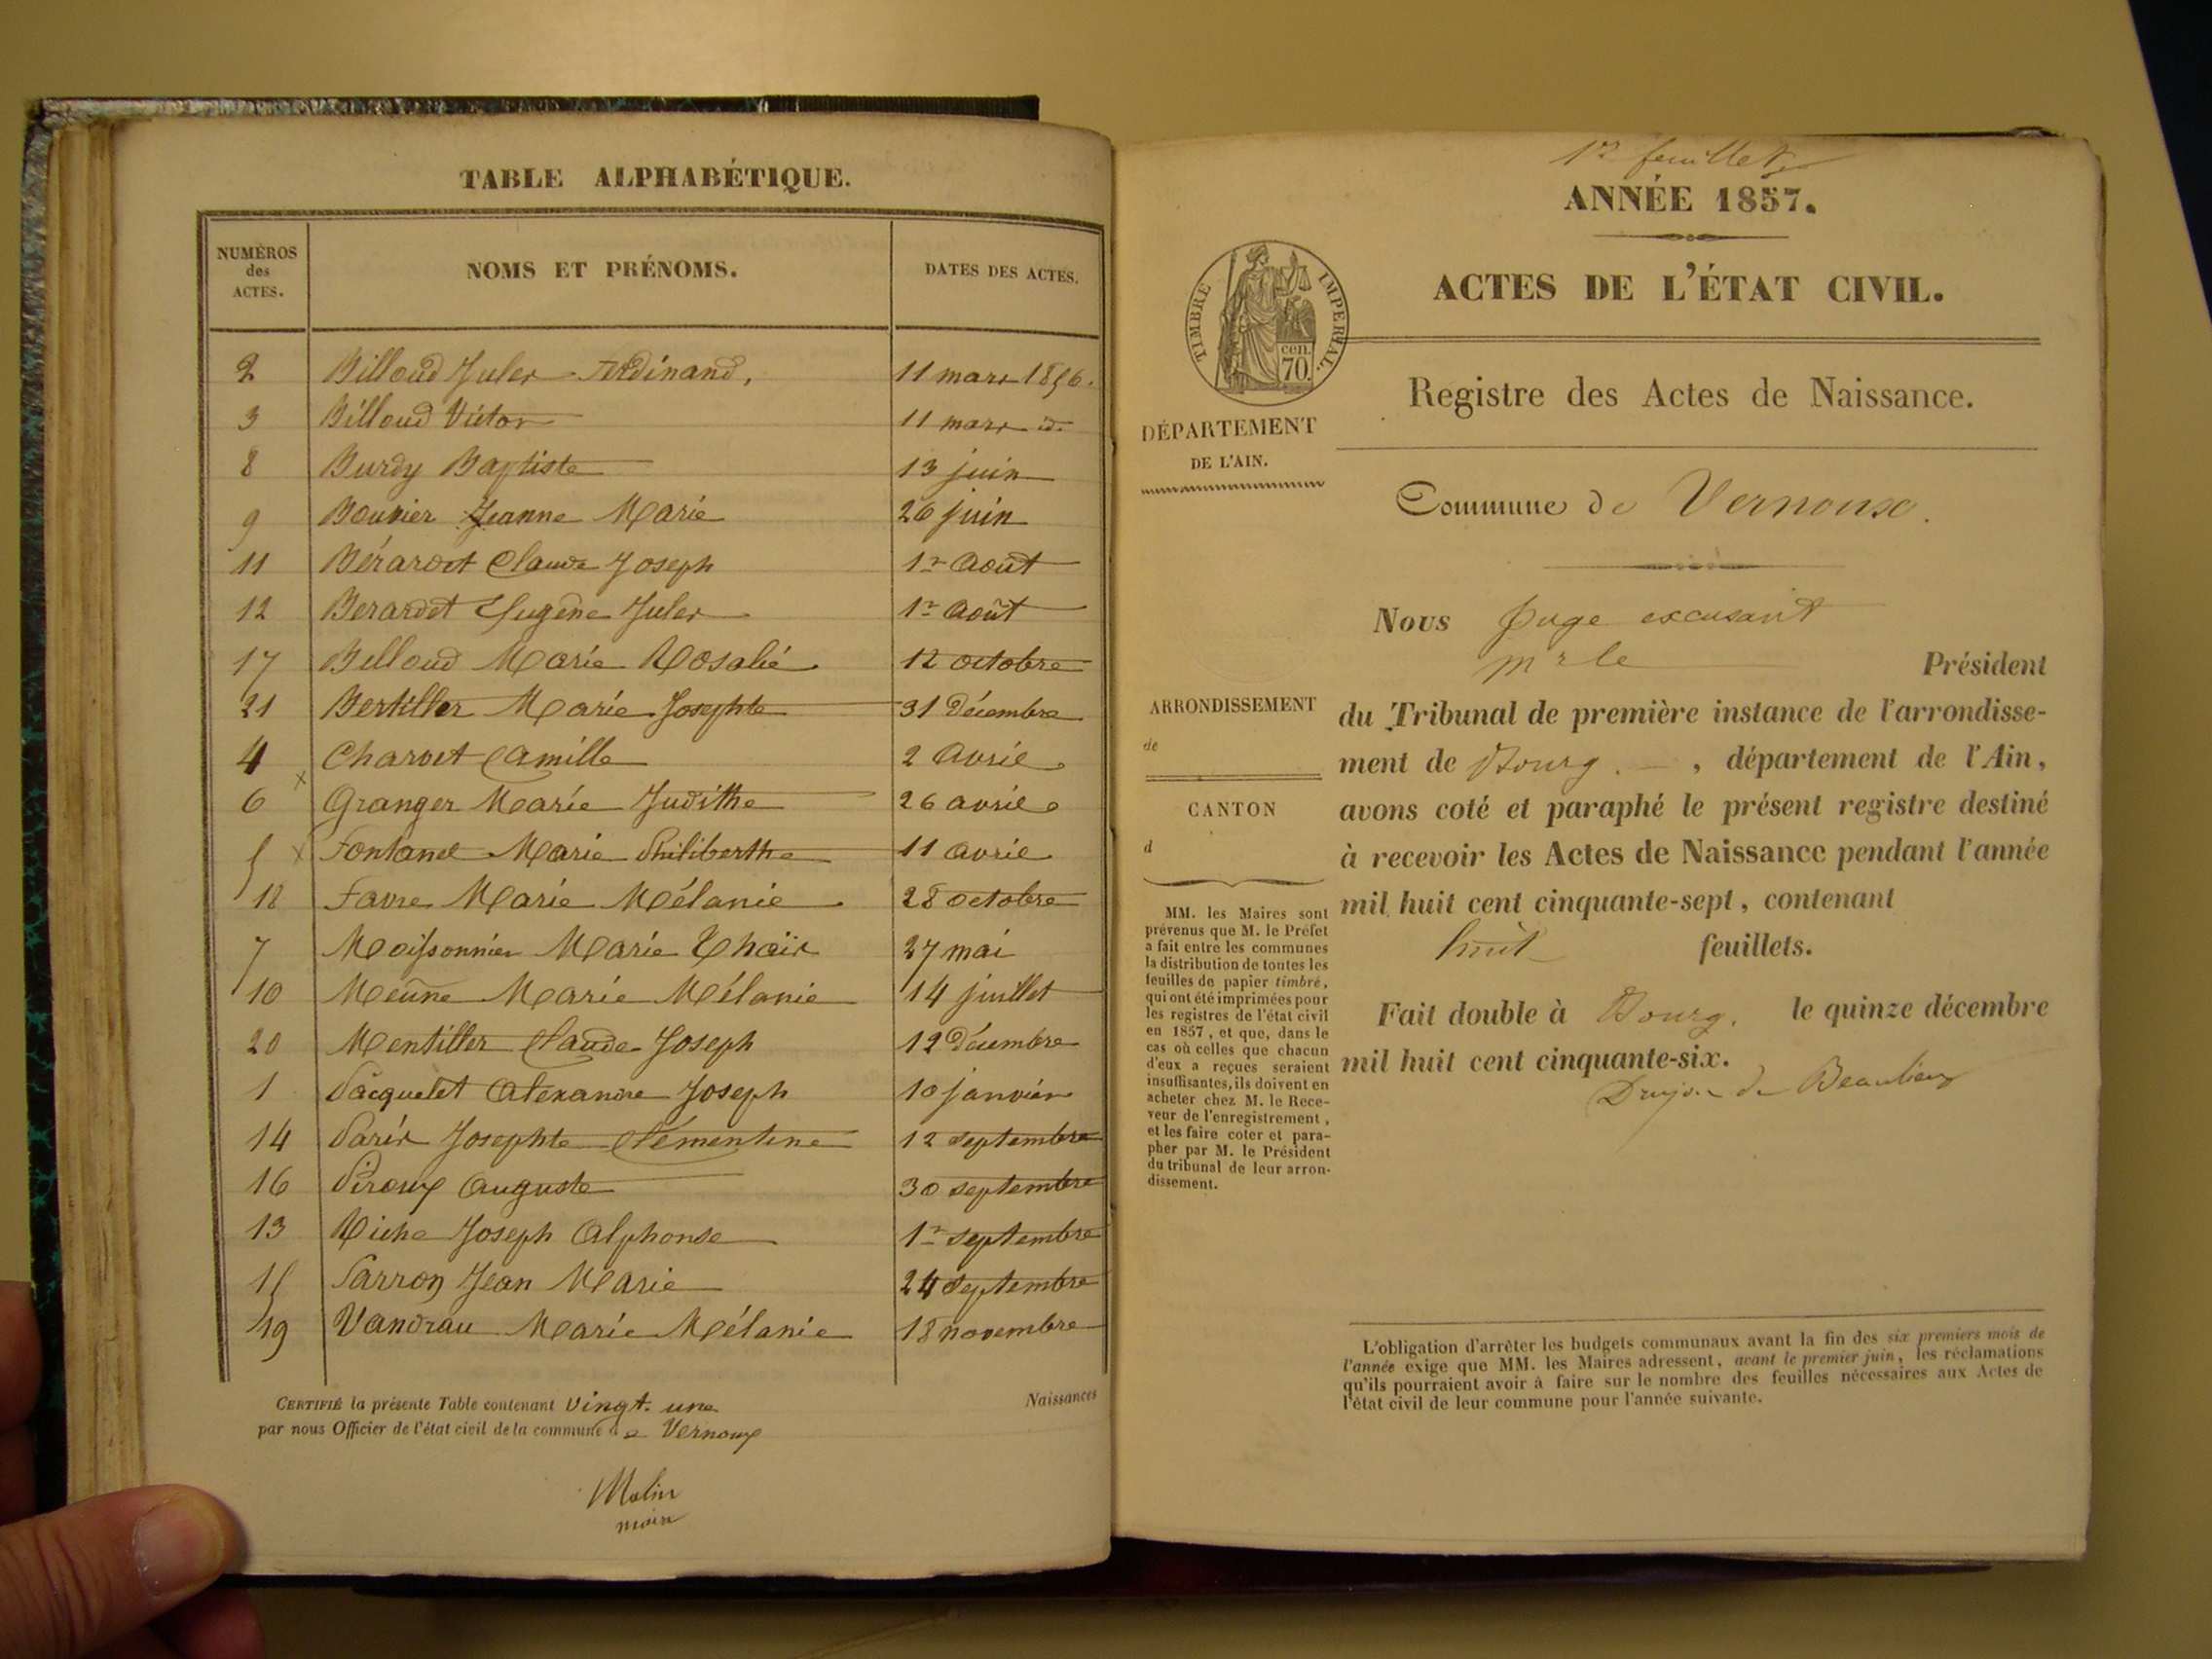 TABLE ALPHABÉTIQUE.
NUMÉROS des ACTES. NOMS ET PRÉNOMS. DATES DES ACTES.
2 Billoud Jules Ferdinand, 11 mars 1856.
3 Billoud Victor 11 mars id.
8 Burdy Baptiste 13 juin
9 Bouvier Jeanne Marie 26 juin
11 Bérardet Claude Joseph 1er Août
12 Berardet Eugène Jules 1er Août
17 Billoud Marie Rosalie 12 octobre
21 Bertiller Marie Josephte 31 Décembre
4 Charvet Camille 2 Avril
6 Granger Marie Judithe 26 avril
5 Fontanel Marie Philiberthe 11 avril
18 Favre Marie Mélanie 28 octobre
7 Moissonnier Marie Thaïs 27 mai
10 Meûne Marie Mélanie 14 juillet
20 Mentiller Claude Joseph 12 Décembre
1 Pacquelet Alexandre Joseph 10 janvier
14 Paris Josephte Clémentine 12 septembre
16 Piroux Auguste 30 septembre
13 Riche Joseph Alphonse 1er septembre
15 Parron Jean Marie 24 septembre
19 Vandrau Marie Mélanie 18 novembre
CERTIFIÉ la présente Table contenant vingt-une Naissances
par nous Officier de l'état civil de la commune de Vernoux
Molin
maire
1er feuillet
ANNÉE 1857.
ACTES DE L'ÉTAT CIVIL.
TIMBRE IMPERIAL.
cen.
70.
Registre des Actes de Naissance.
DÉPARTEMENT
DE L'AIN.
Commune de Vernoux.
Nous Juge excusant
Mr le Président
ARRONDISSEMENT
de
CANTON
d
du Tribunal de première instance de l'arrondisse-
ment de Bourg. , département de l'Ain,
avons coté et paraphé le présent registre destiné
à recevoir les Actes de Naissance pendant l'année
mil huit cent cinquante-sept, contenant
huit feuillets.
Fait double à Bourg. le quinze décembre
mil huit cent cinquante-six.
Drujon de Beaulieu
MM. les Maires sont
prévenus que M. le Préfet
a fait entre les communes
la distribution de toutes les
feuilles de papier timbré,
qui ont été imprimées pour
les registres de l'état civil
en 1857, et que, dans le
cas où celles que chacun
d'eux a reçues seraient
insuffisantes, ils doivent en
acheter chez M. le Rece-
veur de l'enregistrement,
et les faire coter et para-
pher par M. le Président
du tribunal de leur arron-
dissement.
L'obligation d'arrêter les budgets communaux avant la fin des six premiers mois de
l'année exige que MM. les Maires adressent, avant le premier juin, les réclamations
qu'ils pourraient avoir à faire sur le nombre des feuilles nécessaires aux Actes de
l'état civil de leur commune pour l'année suivante.